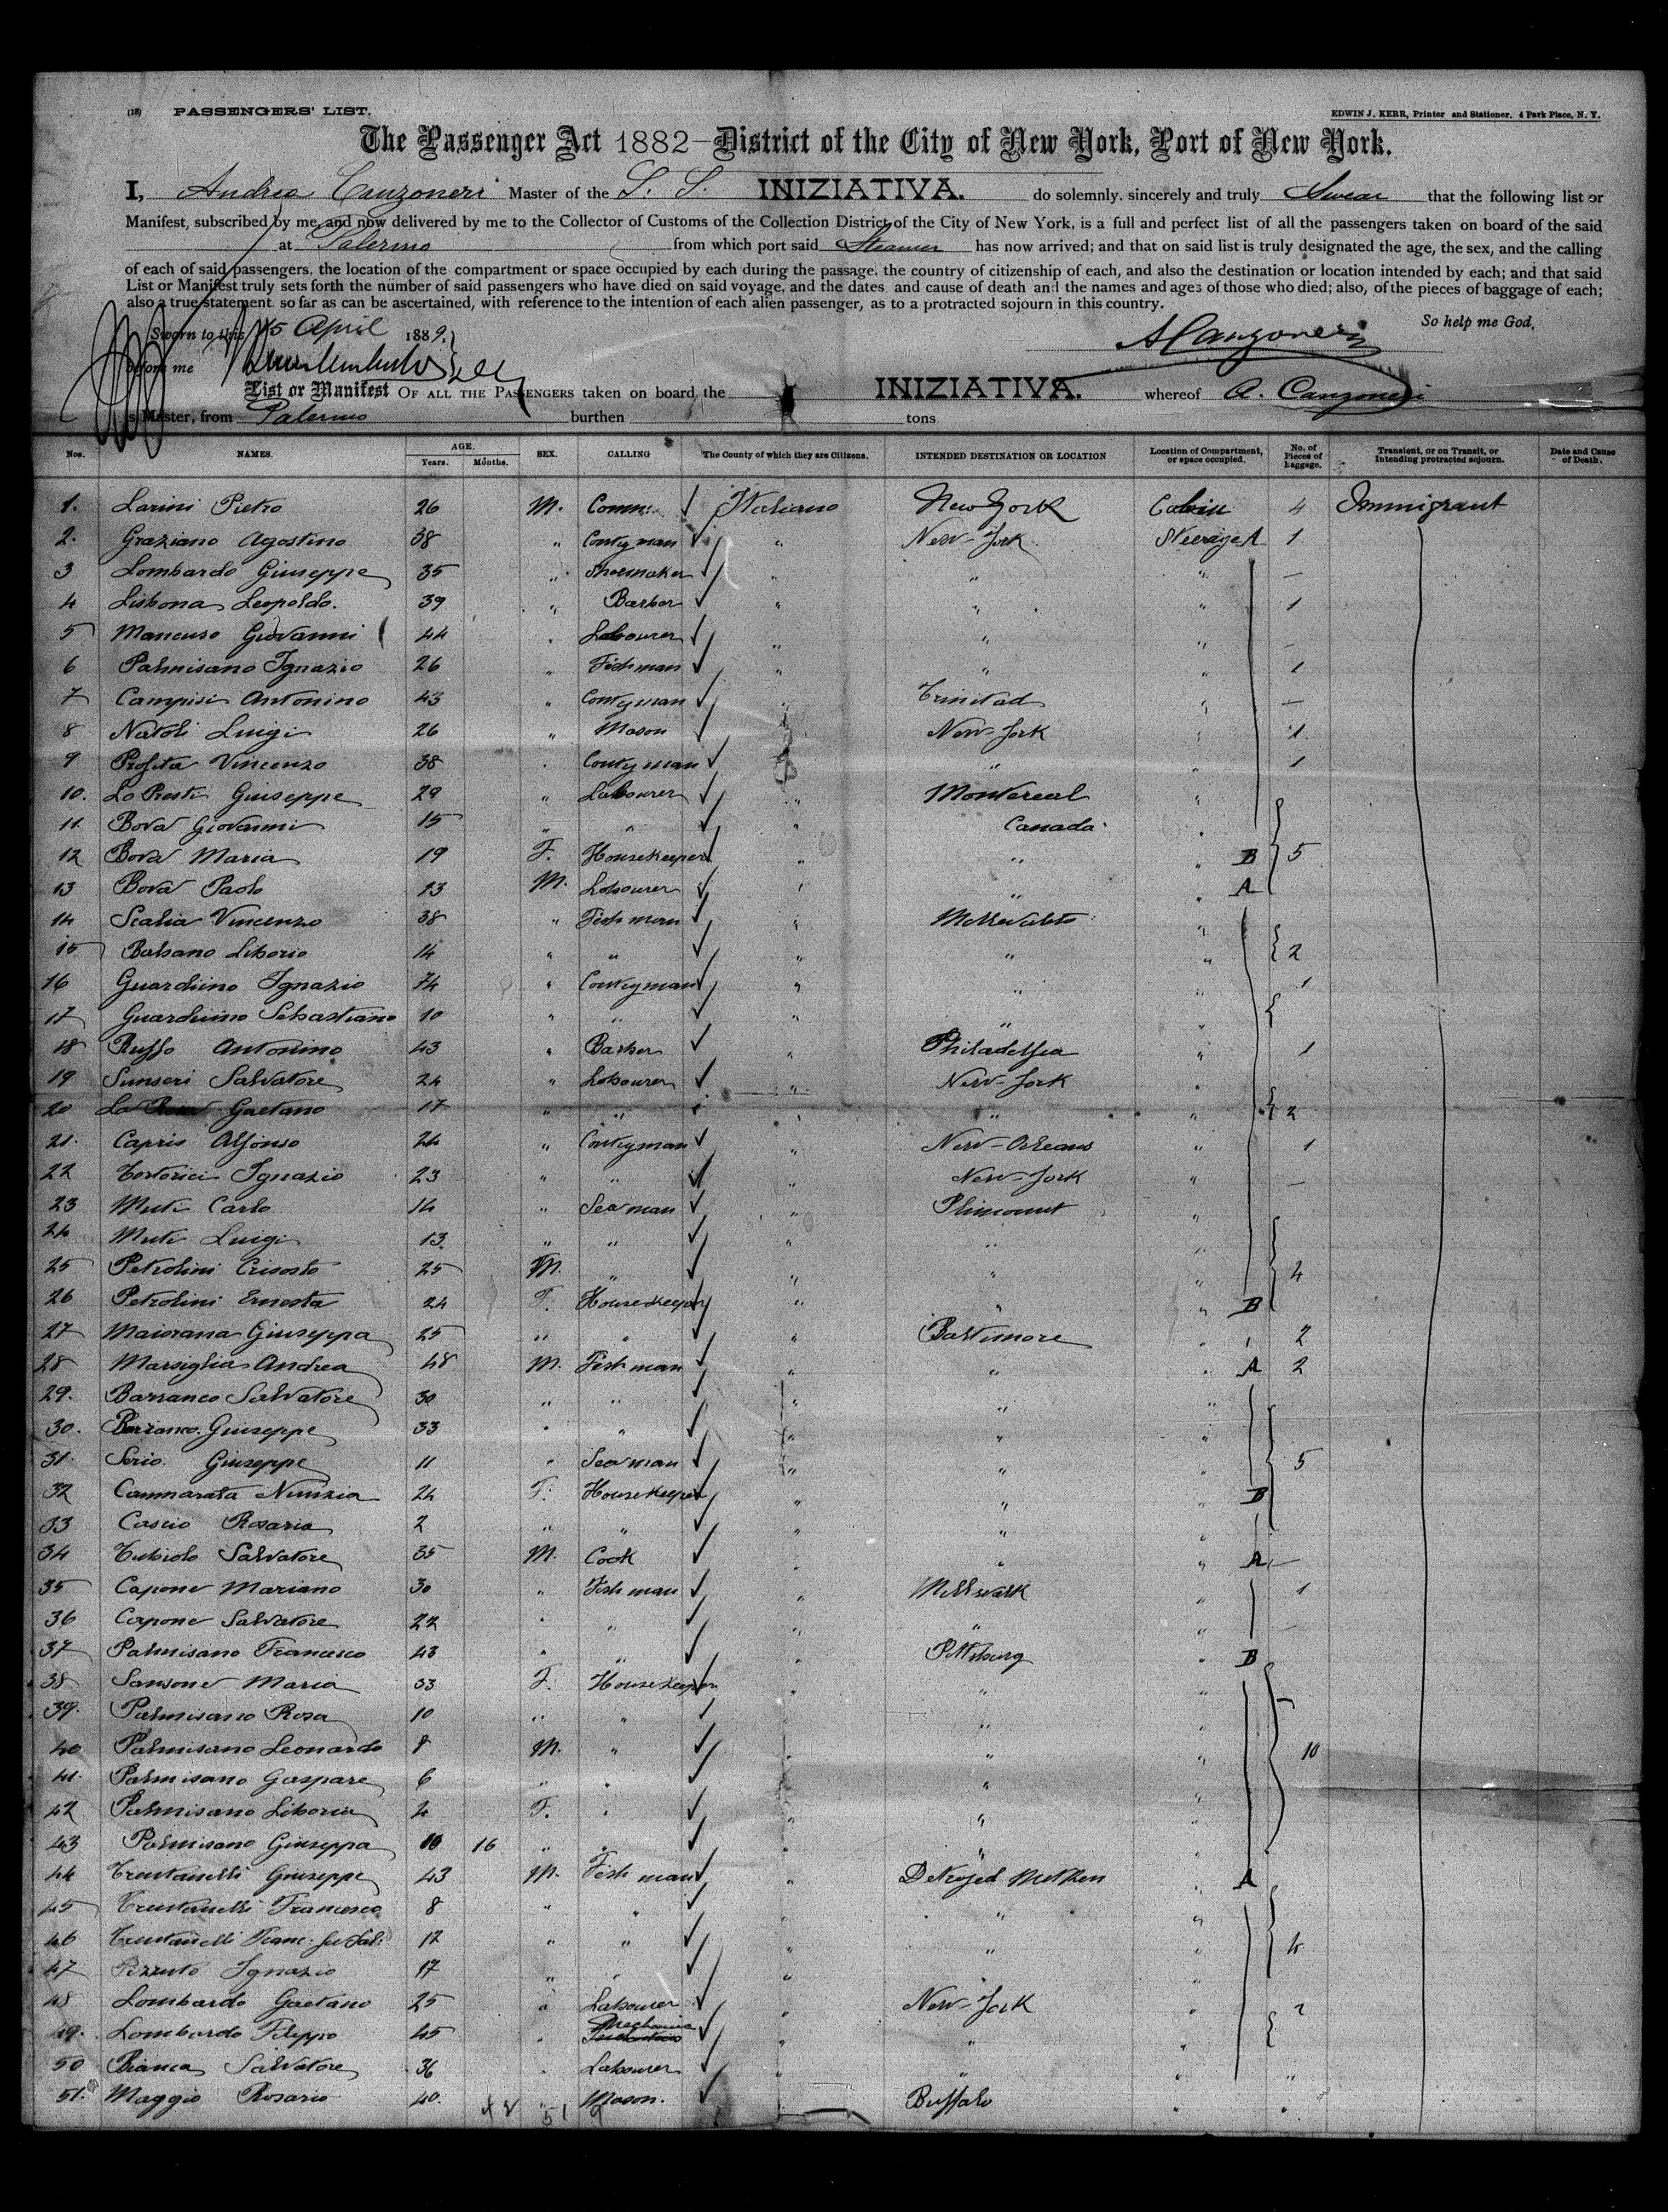 (18) PASSENGERS' LIST. EDWIN J. KERR, Printer and Stationer, 4 Park Place, N. Y.
The Passenger Act 1882—District of the City of New York, Port of New York.
I, Andrea Canzoneri Master of the S. S. INIZIATIVA. do solemnly, sincerely and truly Swear that the following list or
Manifest, subscribed by me, and now delivered by me to the Collector of Customs of the Collection District of the City of New York, is a full and perfect list of all the passengers taken on board of the said
at Palermo from which port said Steamer has now arrived; and that on said list is truly designated the age, the sex, and the calling
of each of said passengers, the location of the compartment or space occupied by each during the passage, the country of citizenship of each, and also the destination or location intended by each; and that said
List or Manifest truly sets forth the number of said passengers who have died on said voyage, and the dates and cause of death and the names and ages of those who died; also, of the pieces of baggage of each;
also a true statement, so far as can be ascertained, with reference to the intention of each alien passenger, as to a protracted sojourn in this country.
Sworn to this 15 April 1889. So help me God,
before me A Canzoneri
List or Manifest OF ALL THE PASSENGERS taken on board the INIZIATIVA. whereof A. Canzoneri
is Master, from Palermo burthen tons
Nos. NAMES. AGE. Years. Months. SEX. CALLING The County of which they are Citizens. INTENDED DESTINATION OR LOCATION Location of Compartment, or space occupied. No. of Pieces of baggage. Transient, or on Transit, or Intending protracted sojourn. Date and Cause of Death.
1. Larini Pietro 26 M. Comm: ✓ Italiano New York Cabin 4 Immigrant
2. Graziano Agostino 38 " Contyman ✓ " New-York Steerage A 1
3 Lombardo Giuseppe 35 " Shoemaker ✓ " " " —
4 Lisbona Leopoldo. 39 " Barber ✓ " " " 1
5 Mancuso Giovanni 44 " Labourer ✓ " " " —
6 Palmisano Ignazio 26 " Fishman ✓ " " " 1
7 Campisi Antonino 43 " Contyman ✓ " Trinitad " —
8 Natoli Luigi 26 " Mason ✓ " New-York " 1
9 Profita Vincenzo 38 " Contyman ✓ " " " 1
10. Lo Presti Giuseppe 29 " Labourer ✓ " Montereal "
11. Bova Giovanni 15 " " ✓ " Canada "
12 Bova Maria 19 F. Housekeeper ✓ " " " B 5
13 Bova Paolo 13 M. Labourer ✓ " " " A
14 Scalia Vincenzo 38 " Fishman ✓ " "
15 Balsano Liborio 14 " " ✓ " " " 2
16 Guardiino Ignazio 74 " Contyman ✓ " " " 1
17 Guardiino Sebastiano 10 " " ✓ " " "
18 Russo Antonino 43 " Barber ✓ " Philadelfia " 1
19 Sunseri Salvatore 24 " Labourer ✓ " New-York "
20 La Gaetano 17 " " ✓ " " " 2
21. Capris Alfonso 24 " Contyman ✓ " New-Orleans " 1
22 Tortorici Ignazio 23 " " ✓ " New-York " —
23 Muti Carlo 14 " Seaman ✓ " Plimount "
24 Muti Luigi 13. " " ✓ " " "
25 Petrolini Crisosto 25 M. " ✓ " " " 4
26 Petrolini Ernesta 24 F. Housekeeper ✓ " " " B
27 Maiorana Giuseppa 25 " " ✓ " Baltimore " " 2
28 Marsiglia Andrea 48 M. Fishman ✓ " " " A 2
29. Barranco Salvatore 30 " " ✓ " " "
30. Barranco Giuseppe 33 " " ✓ " " "
31. Serio. Giuseppe 11 " Seaman ✓ " " " 5
32 Cammarata Nunzia 24 F. Housekeeper ✓ " " " B
33 Cascio Rosaria 2 " " ✓ " " "
34 Tubiolo Salvatore 35 M. Cook ✓ " " " A —
35 Capone Mariano 30 " Fishman ✓ " Millwalk " 1
36 Capone Salvatore 22 " " ✓ " " " —
37 Palmisano Francesco 43 " " ✓ " Pittsburg " B
38 Sansone Maria 33 F. Housekeeper ✓ " " "
39. Palmisano Rosa 10 " " ✓ " " "
40 Palmisano Leonardo 8 M. " ✓ " " " 10
41. Palmisano Gaspare 6 " " ✓ " " "
42 Palmisano Liboria 4 F. " ✓ " " "
43 Palmisano Giuseppa 16 " " ✓ " " "
44 Trentanelli Giuseppe 43 M. Fishman ✓ " " A
45 Trentanelli Francesco 8 " " ✓ " " "
46 Trentanelli Franc: fu Sal: 12 " " ✓ " " " 4
47 Pizzuto Ignazio 17 " " ✓ " " "
48 Lombardo Gaetano 25 " Labourer ✓ " New-York " 2
49. Lombardo Filippo 45 " Mechanic ✓ " " "
50 Bianca Salvatore 36 " Labourer ✓ " " " "
51. Maggio Rosario 40. " Mason. ✓ " Buffalo " "
48 51 9